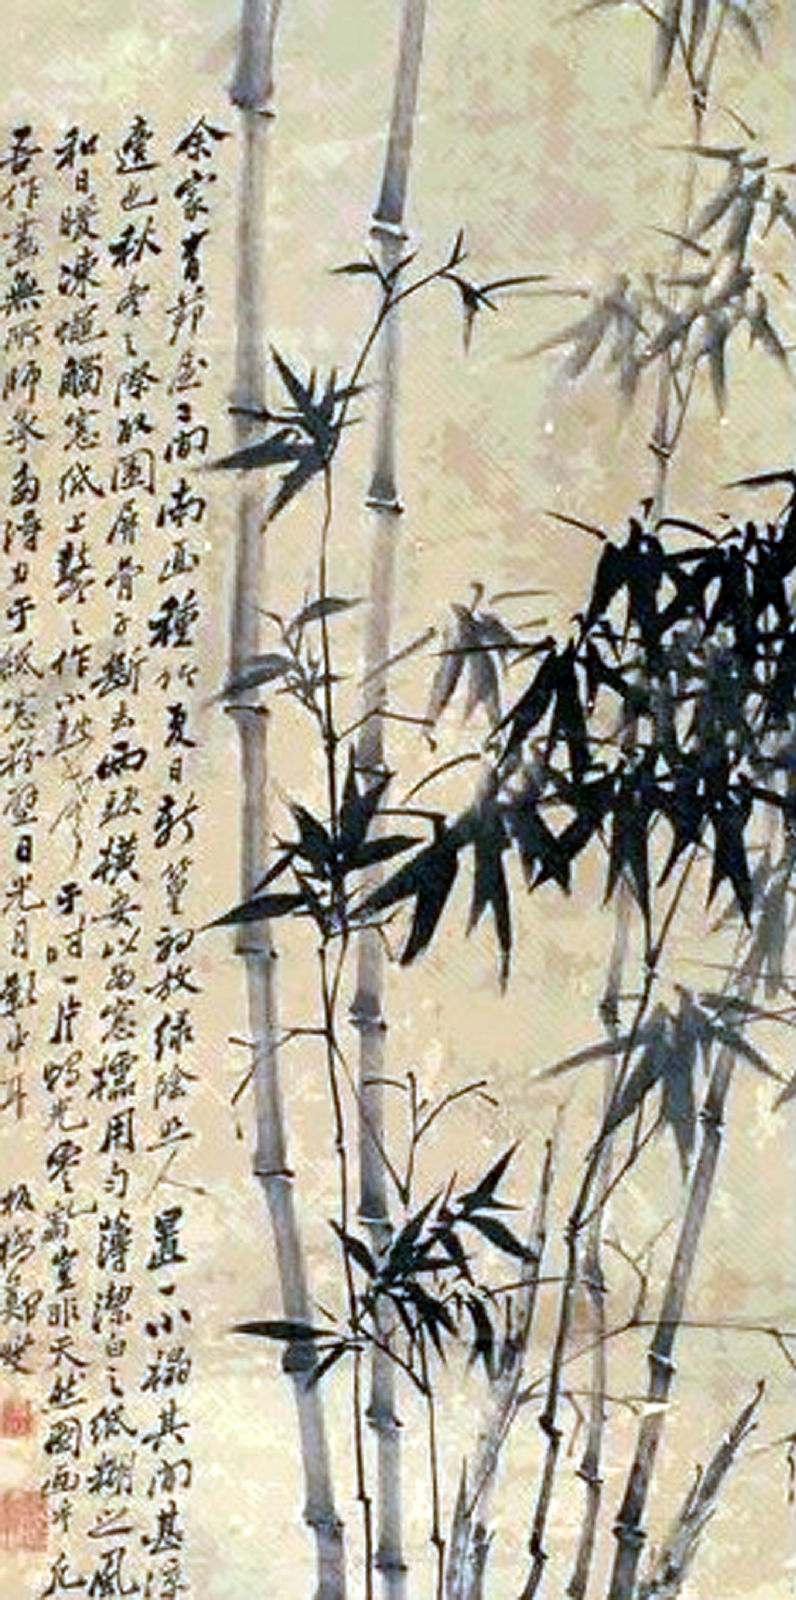 余家有茆屋二間南面種竹夏日新篁初放绿陰照人置一小榻其間甚涼
適也秋冬之際取圍屏骨子斷去兩頭横安以為窓櫺用匀薄潔白之紙糊之風
和日暖凍蠅觸窓紙上鼕々作小鼓聲于時一片零亂豈非天然圖画乎凡
吾作畫無所師承多得力于紙窓粉壁日光月影中耳
板橋鄭燮